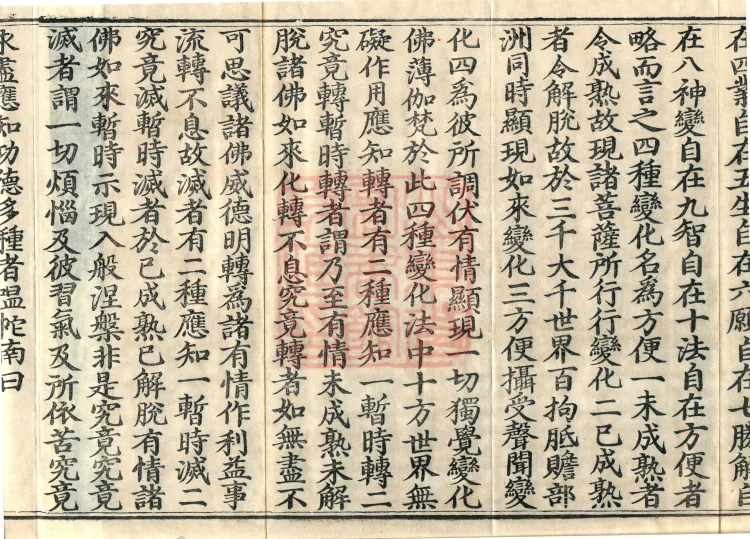 在四業自在五生自在六願自在七勝解自
在八神變自在九智自在十法自在方便者
略而言之四種變化名爲方便一未成熟者
令成熟故現諸菩薩所行行變化二已成熟
者令解脫故於三千大千世界百拘胝贍部
洲同時顯現如來變化三方便攝受聲聞變
化四爲彼所調伏有情顯現一切獨覺變化
佛薄伽梵於此四種變化法中十方世界無
礙作用應知轉者有二種應知一暫時轉二
究竟轉暫時轉者謂乃至有情未成熟未解
脫諸佛如來化轉不息究竟轉者如無盡不
可思議諸佛威德明轉爲諸有情作利益事
流轉不息故滅者有二種應知一暫時滅二
究竟滅暫時滅者於已成熟已解脫有情諸
佛如來暫時示現入般涅槃非是究竟究竟
滅者謂一切煩惱及彼習氣及所依苦究竟
永盡應知功德多種者嗢陀南曰